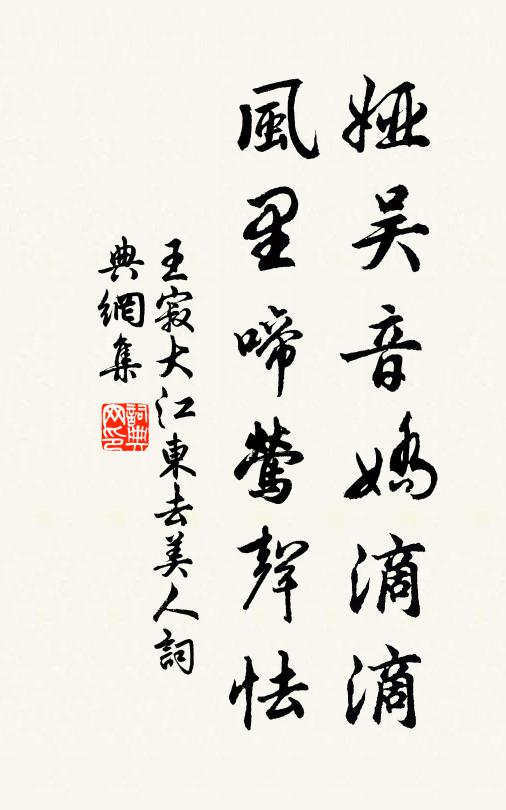 婭吴音嬌滴滴
風里啼鶯聲怯
王寂大江東去美人詞
典網集
詞典网印